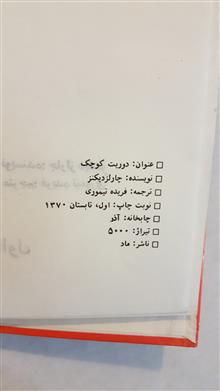 □ عنوان: دوریت کوچک
□ نویسنده: چارلزدیکنز
□ ترجمه: فریده تیموری
□ نوبت چاپ: اول، تابستان ۱۳۷۰
□ چاپخانه: آذو
□ تیراژ: ۵۰۰۰
□ ناشر: ماد